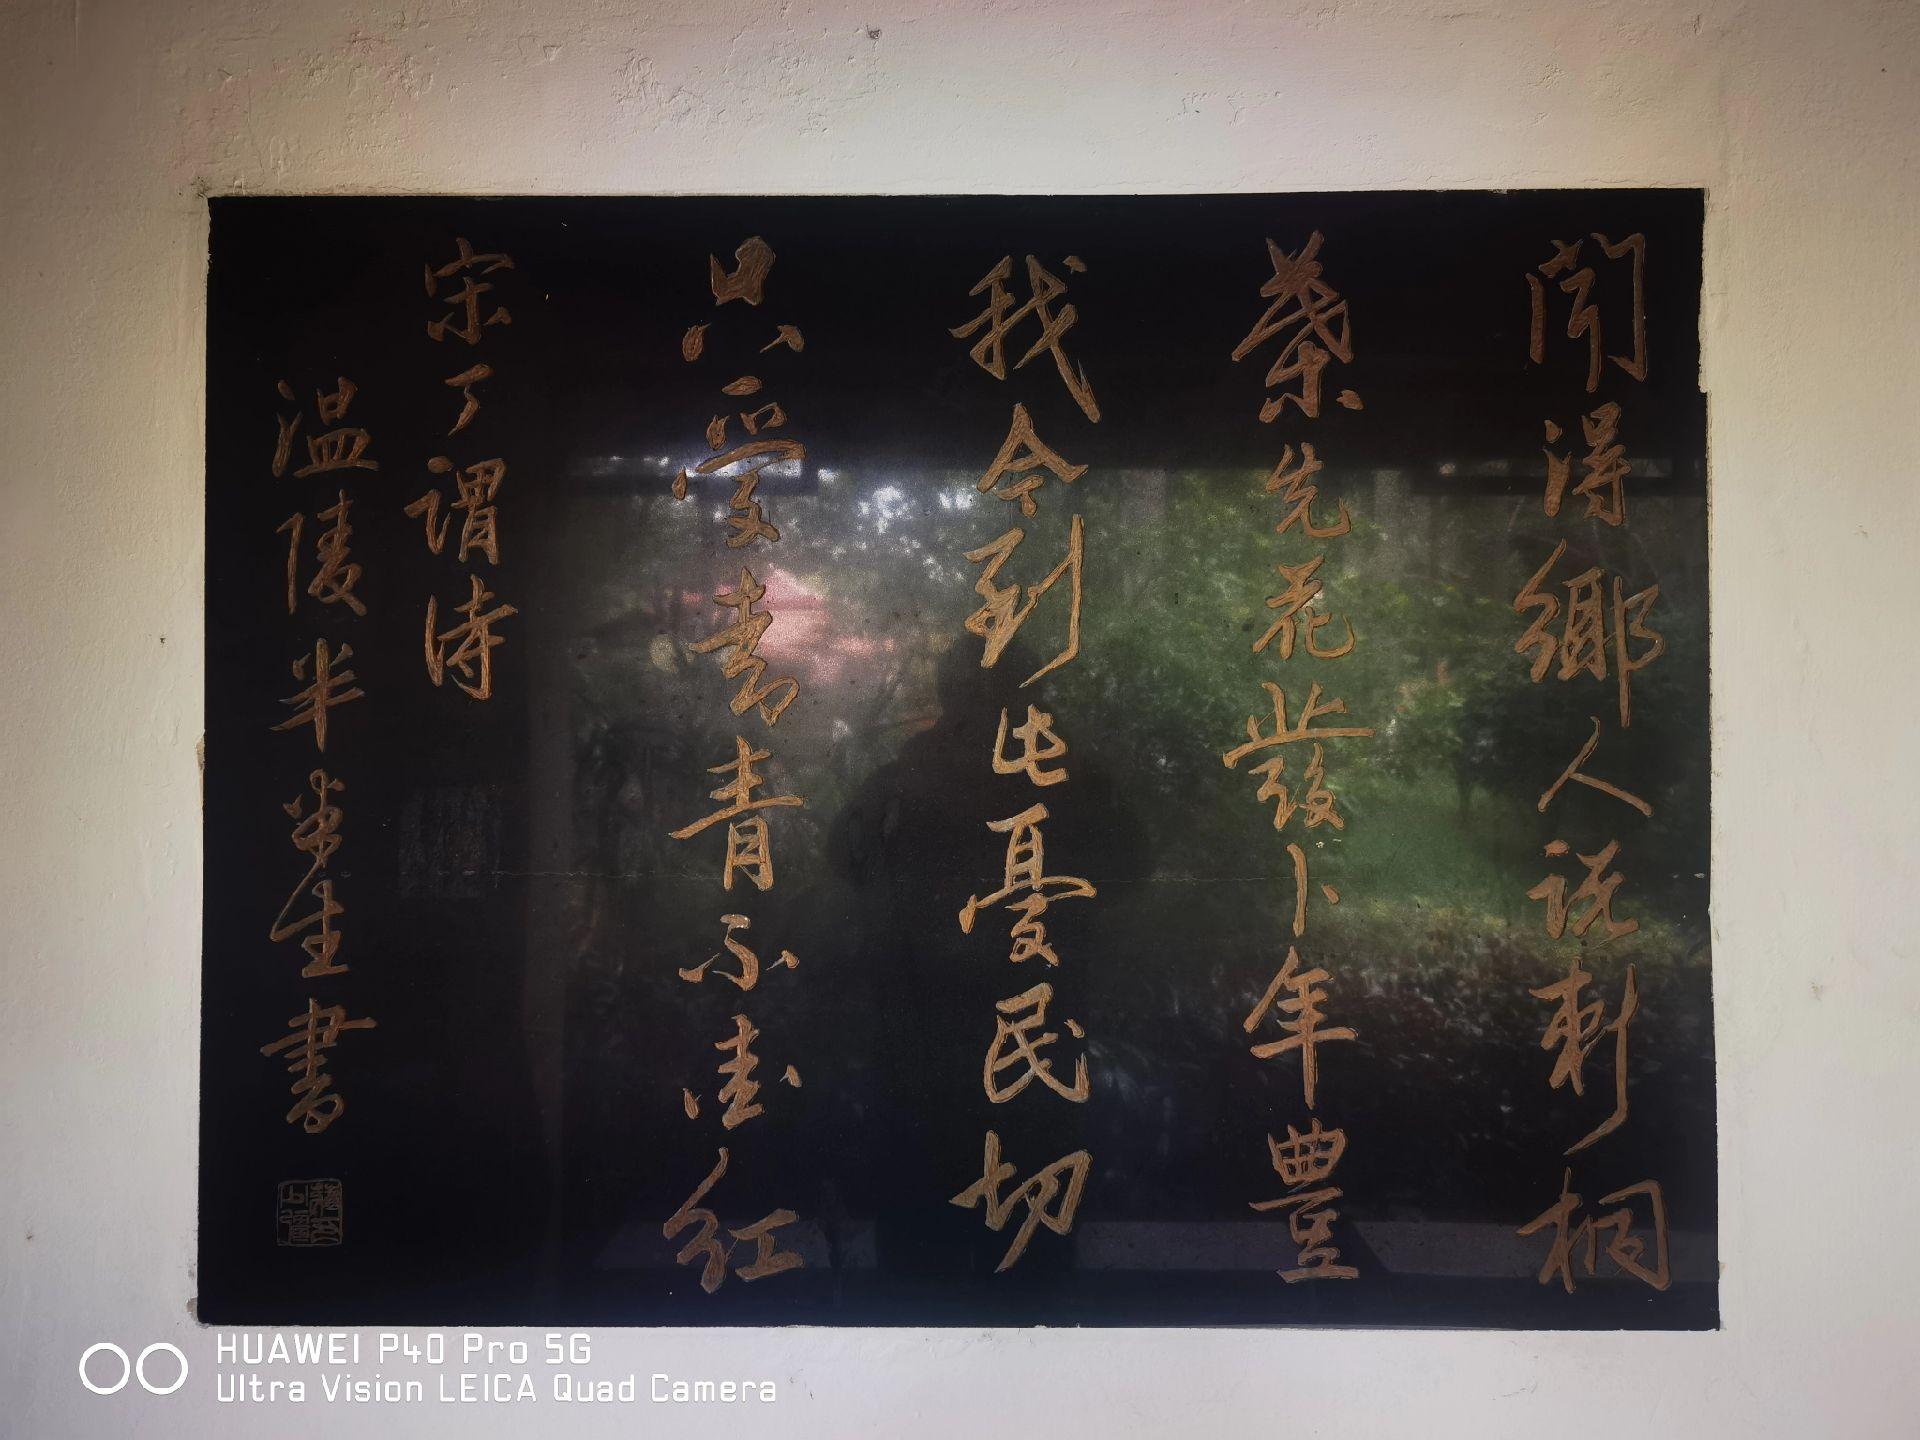 聞得鄉人說刺桐
葉先花發卜年豐
我今到此憂民切
只愛青青不愛紅
宋丁謂詩
溫陵半半生書
HUAWEI P40 Pro 5G
Ultra Vision LEICA Quad Camera